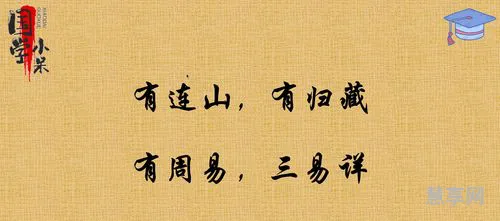 国学小呆
有连山，有归藏
有周易，三易详
慧享网